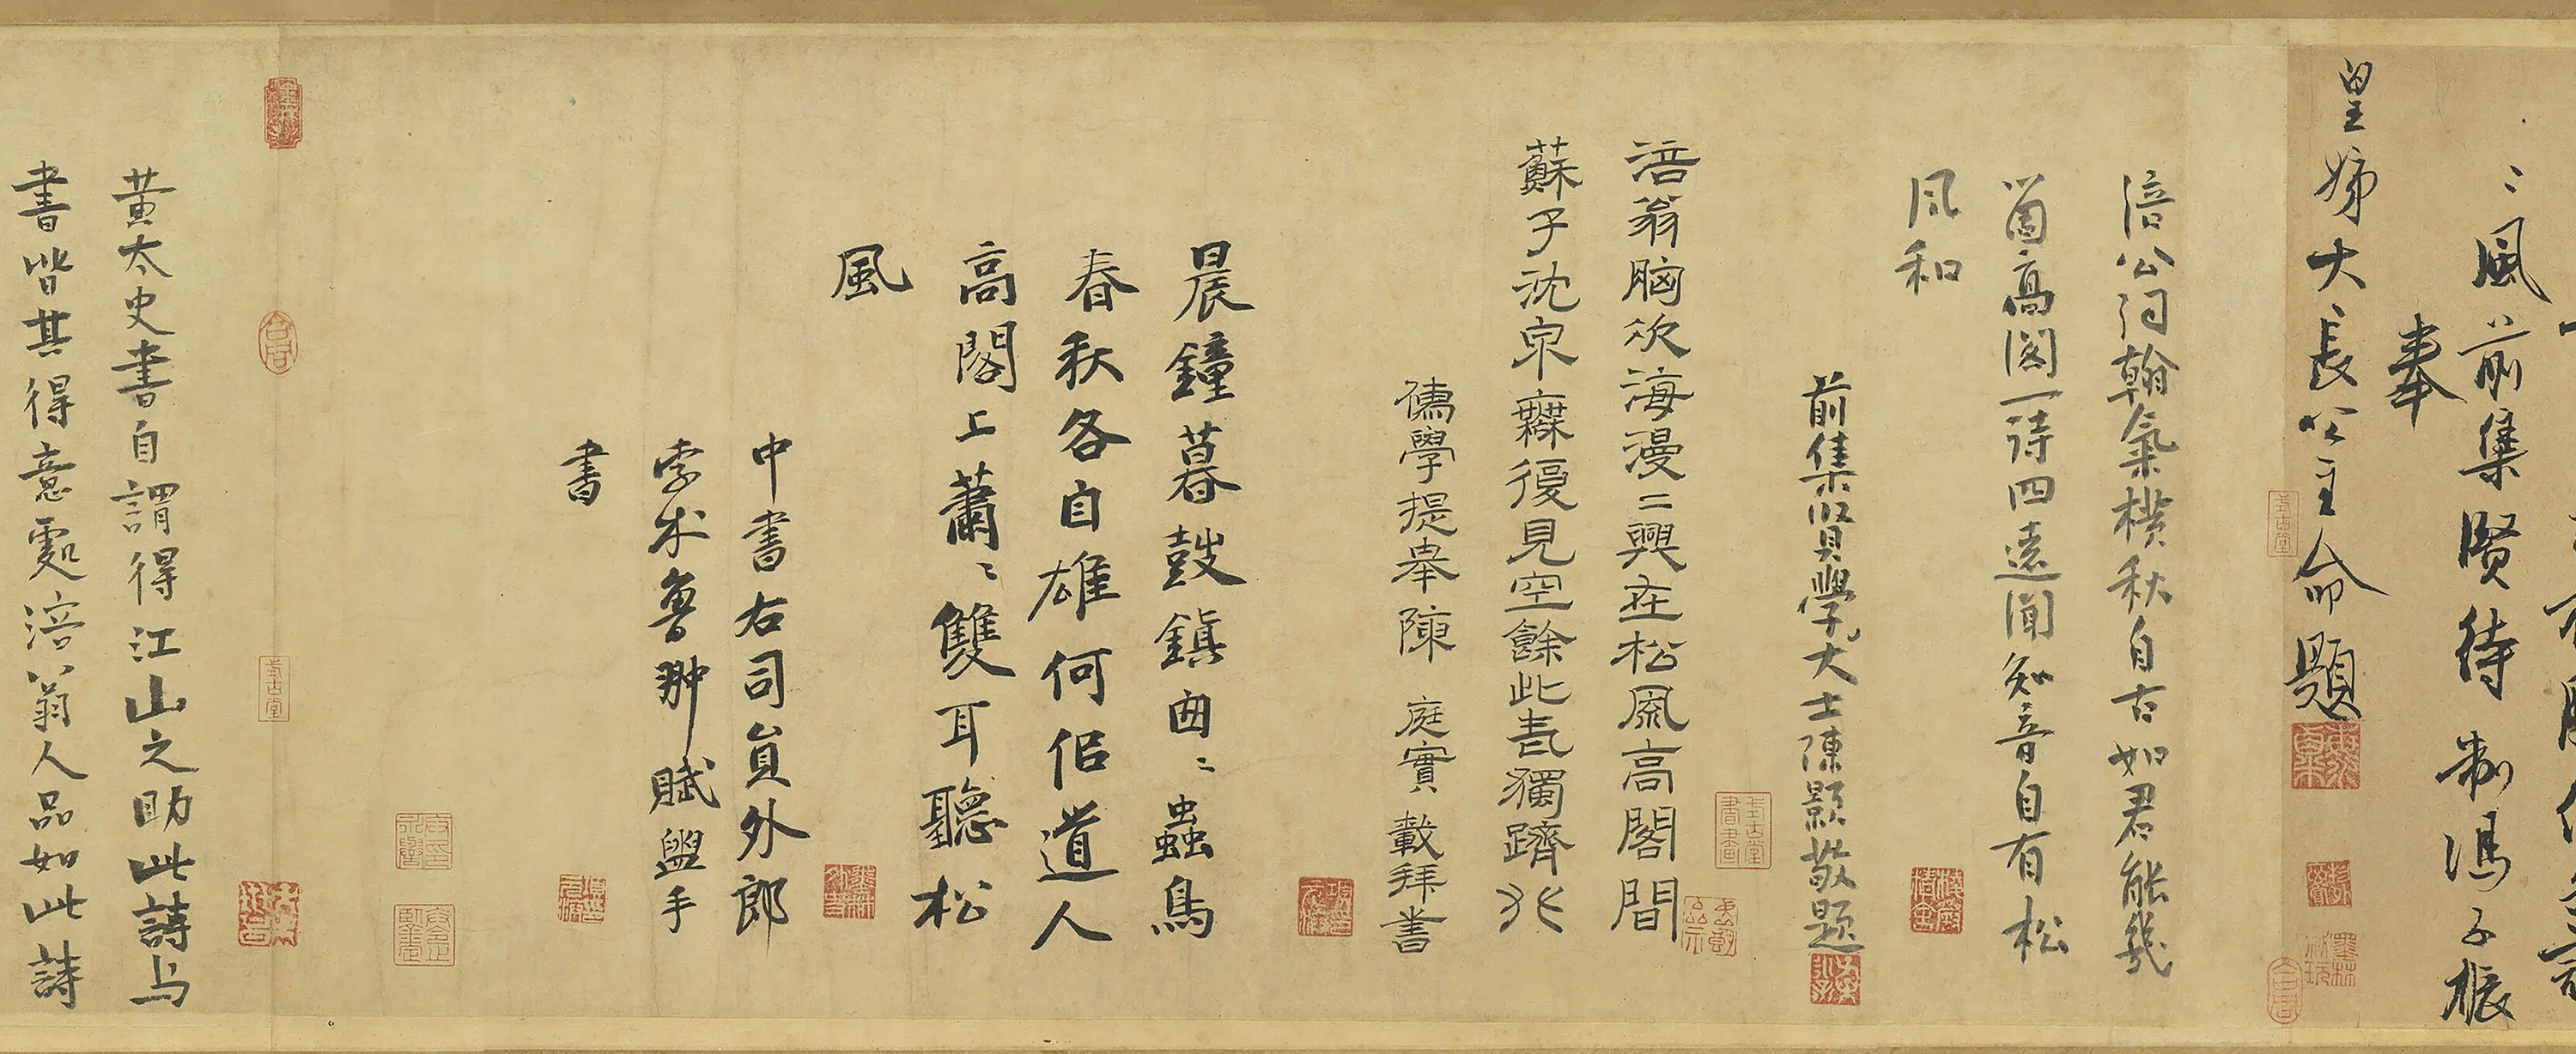 〻風前集賢待制馮子振
奉
皇姊大〻長公主命題
涪公詞翰氣橫秋自古如君能幾
箇高閣一詩四遠聞知音自有松
風和
前集賢學士大陳顥敬題
涪翁胸次海漫〻興在松風高閣間
蘇子沈泉無復見空餘此書獨躋
儒學提舉陳庭實載拜書
晨鐘暮鼓鎮由〻蟲鳥
春秋各自雄何佀道人
高閣上蕭〻雙耳聽松
風
中書右司員外郎
孛术魯翀賦盥手
書
黃太史書自謂得江山之助此詩与
書皆其得意處涪翁人品如此詩